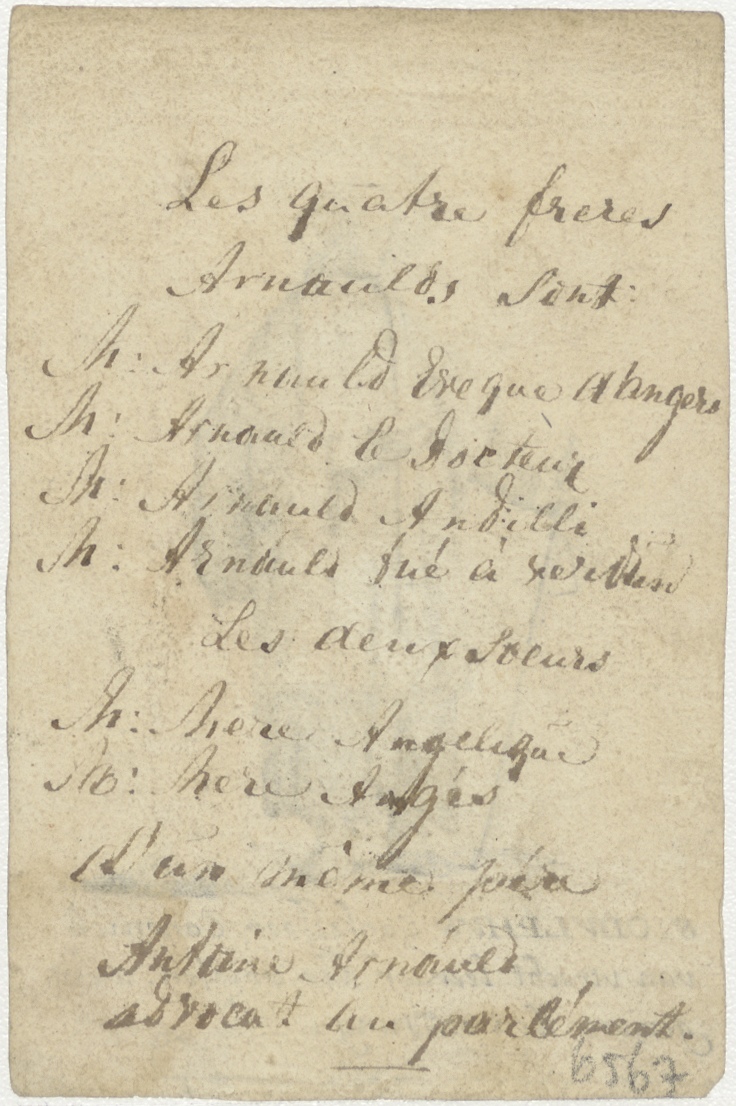 Les quatre freres
Arnaulds sont:
M: Arnauld Eveque d'angers
M: Arnauld le Docteur
M: Arnauld Andilli
M: Arnauld tué à verdun
Les deux soeurs
M: Mere Angelique
M: Mere Angés
d'un même père
Antoine Arnauld
advocat au parlément.
6267